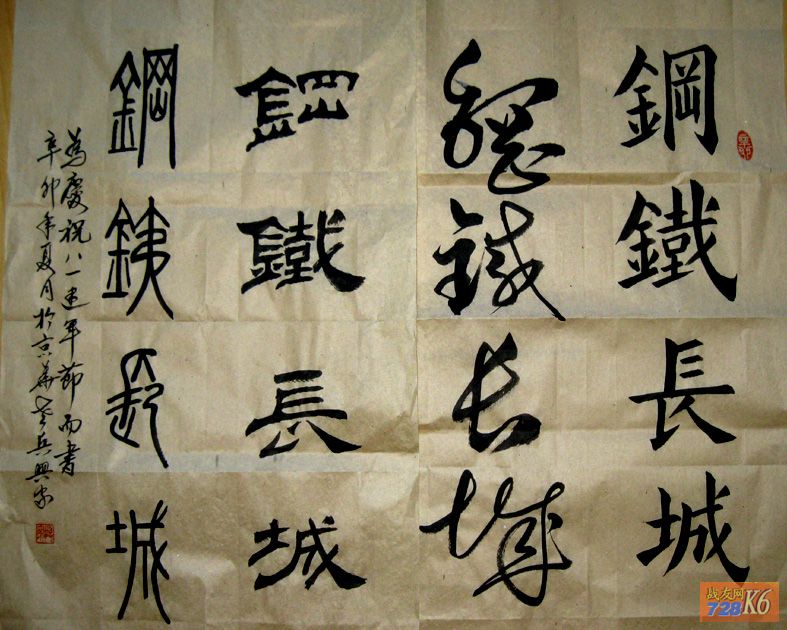 鋼鐵長城
鋼鐵长城
鋼鐵長城
鋼鐵長城
為慶祝八一建軍節而書
辛卯年夏月於京華老兵興家
战友网
728K6